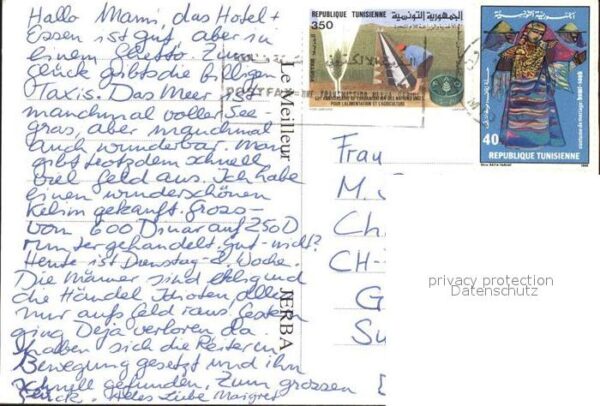 Hallo Mami, das Hotel +
Essen ist gut, aber in
einem Ghetto. Zum
Glück gibts die billigen
Taxis. Das Meer ist
manchmal voller See-
gras, aber manchmal
auch wunderbar. Man
gibt trotzdem schnell
viel Geld aus. Ich habe
einen wunderschönen
Kelim gekauft. Gross-
von 600 Dinar auf 250 D
runtergehandelt. gut - nicht?
Heute ist Dienstag - 2. Woche.
Die Männer sind eklig und
die Händel Idioten alle
nur aufs Geld raus. Gestern
ging Deja verloren da
haben sich die Reiter in
Bewegung gesetzt und ihn
schnell gefunden. Zum grossen
Glück. Alles Liebe Maigret
Le Meilleur
JERBA
350
REPUBLIQUE TUNISIENNE
الجمهورية التونسية
POUR L'ALIMENTATION ET L'AGRICULTURE
POSTFAX
40
REPUBLIQUE TUNISIENNE
Frau
M.
Ch
CH-
G
Su
privacy protection
Datenschutz